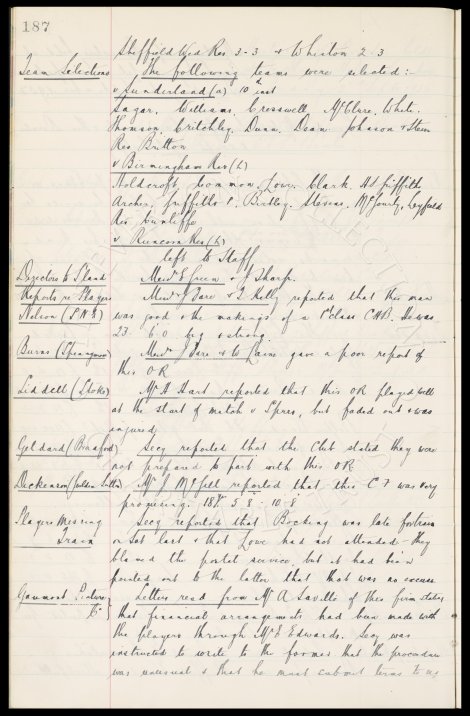 187
Sheffield Wed Res 3-3 & Whiston 2 3
Team Selections The following teams were selected:-
v Sunderland (a) 10th inst
Sagar, Williams, Cresswell, McClure, White,
Thomson, Critchley, Dunn, Dean, Johnson & Stein
Res Britton
v Birmingham Res (h)
Holdcroft, Common, Lowe, Clark, H Griffiths
Archer, Griffiths P. Birtley, Stevens, McGourty, Leyfield
Res Cunliffe
v Runcorn Res (h)
left to Staff
Directors to Stand Messrs Green & Sharp.
Reports re Players Messrs Dare & Kelly reported that this man
Nelson (P.N.E) was good & the makings of a 1st class C H B. He was
23 6.0 big & strong.
Burns Messrs J Dare & gave a poor report of
this O R
Liddell (Stoke) Mr H Hart reported that this O R played well
at the start of match v Spurs, but faded out & was
injured
Geldard (Bradford) Secy reported that the Club stated they were
not prepared to part with this O R.
Dickenson Mr J McGill reported that this C F was very
promising. 18½ 5.8 : 10.8
Players Missing Secy reported that Bocking was late for train
Train on Sat last & that Lowe had not attended - they
blamed the postal service, but it had been
pointed out to the latter that that was no excuse
Gaumont Letters read from Mr A Saville of this firm stating
Co } that financial arrangements had been made with
the players through Mr E Edwards. Secy was
instructed to write to the former that the procedure
was unusual & that he must submit terms to us